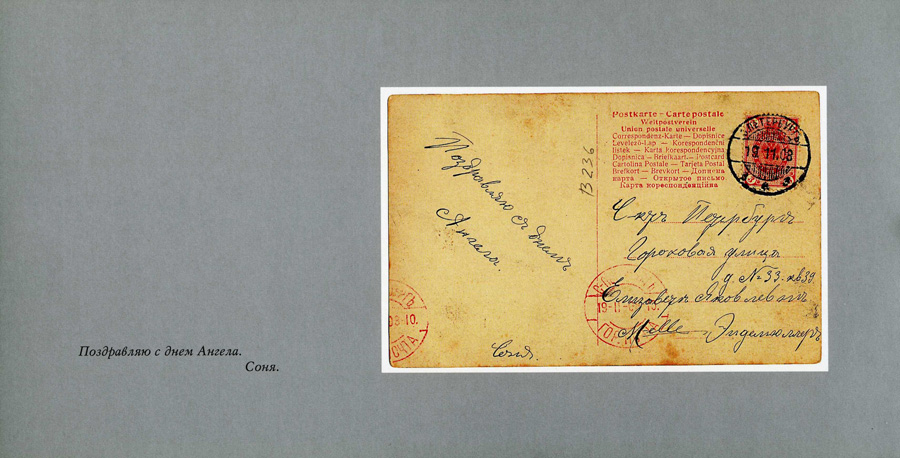 Поздравляю с днем Ангела.
Соня.
Поздравляю съ днемъ
Ангела.
Соня.
Postkarte – Carte postale
Weltpostverein
Union postale universelle
Correspondenz-Karte – Dopisnice
Levelező-Lap – Korespondenční
lístek – Karta korespondencyjna
Dopisnica – Briefkaart – Postcard
Cartolina Postale – Tarjeta Postal
Brefkort – Brevkort – Дописна
карта – Открытое письмо
Карта кореспонденційна
B236
19.11.08
С-ктъ Петербургъ
Гороховая улица
д. № 33. кв 39.
Елизавета Яковлевнѣ
Mlle
19-11-
08-10.
ПОЧТА
ГОР.